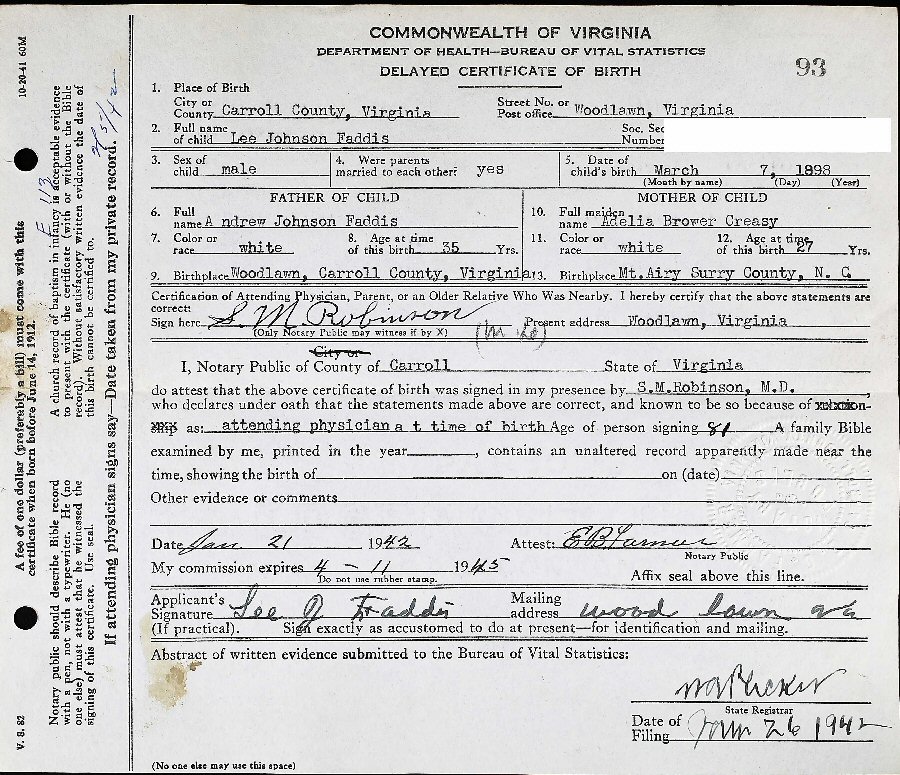 COMMONWEALTH OF VIRGINIA
DEPARTMENT OF HEALTH—BUREAU OF VITAL STATISTICS
DELAYED CERTIFICATE OF BIRTH
93
1. Place of Birth
City or County Carroll County, Virginia Street No. or Post office Woodlawn, Virginia
2. Full name of child Lee Johnson Faddis Soc. Sec Number
3. Sex of child male 4. Were parents married to each other? yes 5. Date of child's birth March 7, 1898
(Month by name) (Day) (Year)
FATHER OF CHILD MOTHER OF CHILD
6. Full name A ndrew Johnson Faddis 10. Full maiden name Adelia Brower Creasy
7. Color or race white 8. Age at time of this birth 35 Yrs. 11. Color or race white 12. Age at time of this birth 27 Yrs.
9. Birthplace Woodlawn, Carroll County, Virginia 13. Birthplace Mt. Airy Surry County, N. C.
Certification of Attending Physician, Parent, or an Older Relative Who Was Nearby. I hereby certify that the above statements are
correct:
Sign here S M Robinson Present address Woodlawn, Virginia
(Only Notary Public may witness if by X) (M D)
City or
I, Notary Public of County of Carroll State of Virginia
do attest that the above certificate of birth was signed in my presence by S.M.Robinson, M.D.,
who declares under oath that the statements made above are correct, and known to be so because of xxxxxon-
xxx as: attending physician a t time of birth Age of person signing 81 A family Bible
examined by me, printed in the year , contains an unaltered record apparently made near the
time, showing the birth of on (date)
Other evidence or comments
Date Jan. 21 1942 Attest: E B Farmer
Notary Public
My commission expires 4 - 11 1945
Do not use rubber stamp. Affix seal above this line.
Applicant's Signature Lee J Faddis Mailing address wood lawn va
(If practical). Sign exactly as accustomed to do at present—for identification and mailing.
Abstract of written evidence submitted to the Bureau of Vital Statistics:
W A Plecker
State Registrar
Date of Filing Jan 26 1942
(No one else may use this space)
V. S. 82
A fee of one dollar (preferably a bill) must come with this
certificate when born before June 14, 1912.
10-20-41 60M
Notary public should describe Bible record
with a pen, not with a typewriter. He (no
one else) must attest that he witnessed the
signing of this certificate. Use seal.
A church record of baptism in infancy is acceptable evidence
to present with the certificate (with or without the Bible
record). Without satisfactory written evidence the date of
this birth cannot be certified to.
If attending physician signs say—Date taken from my private record.